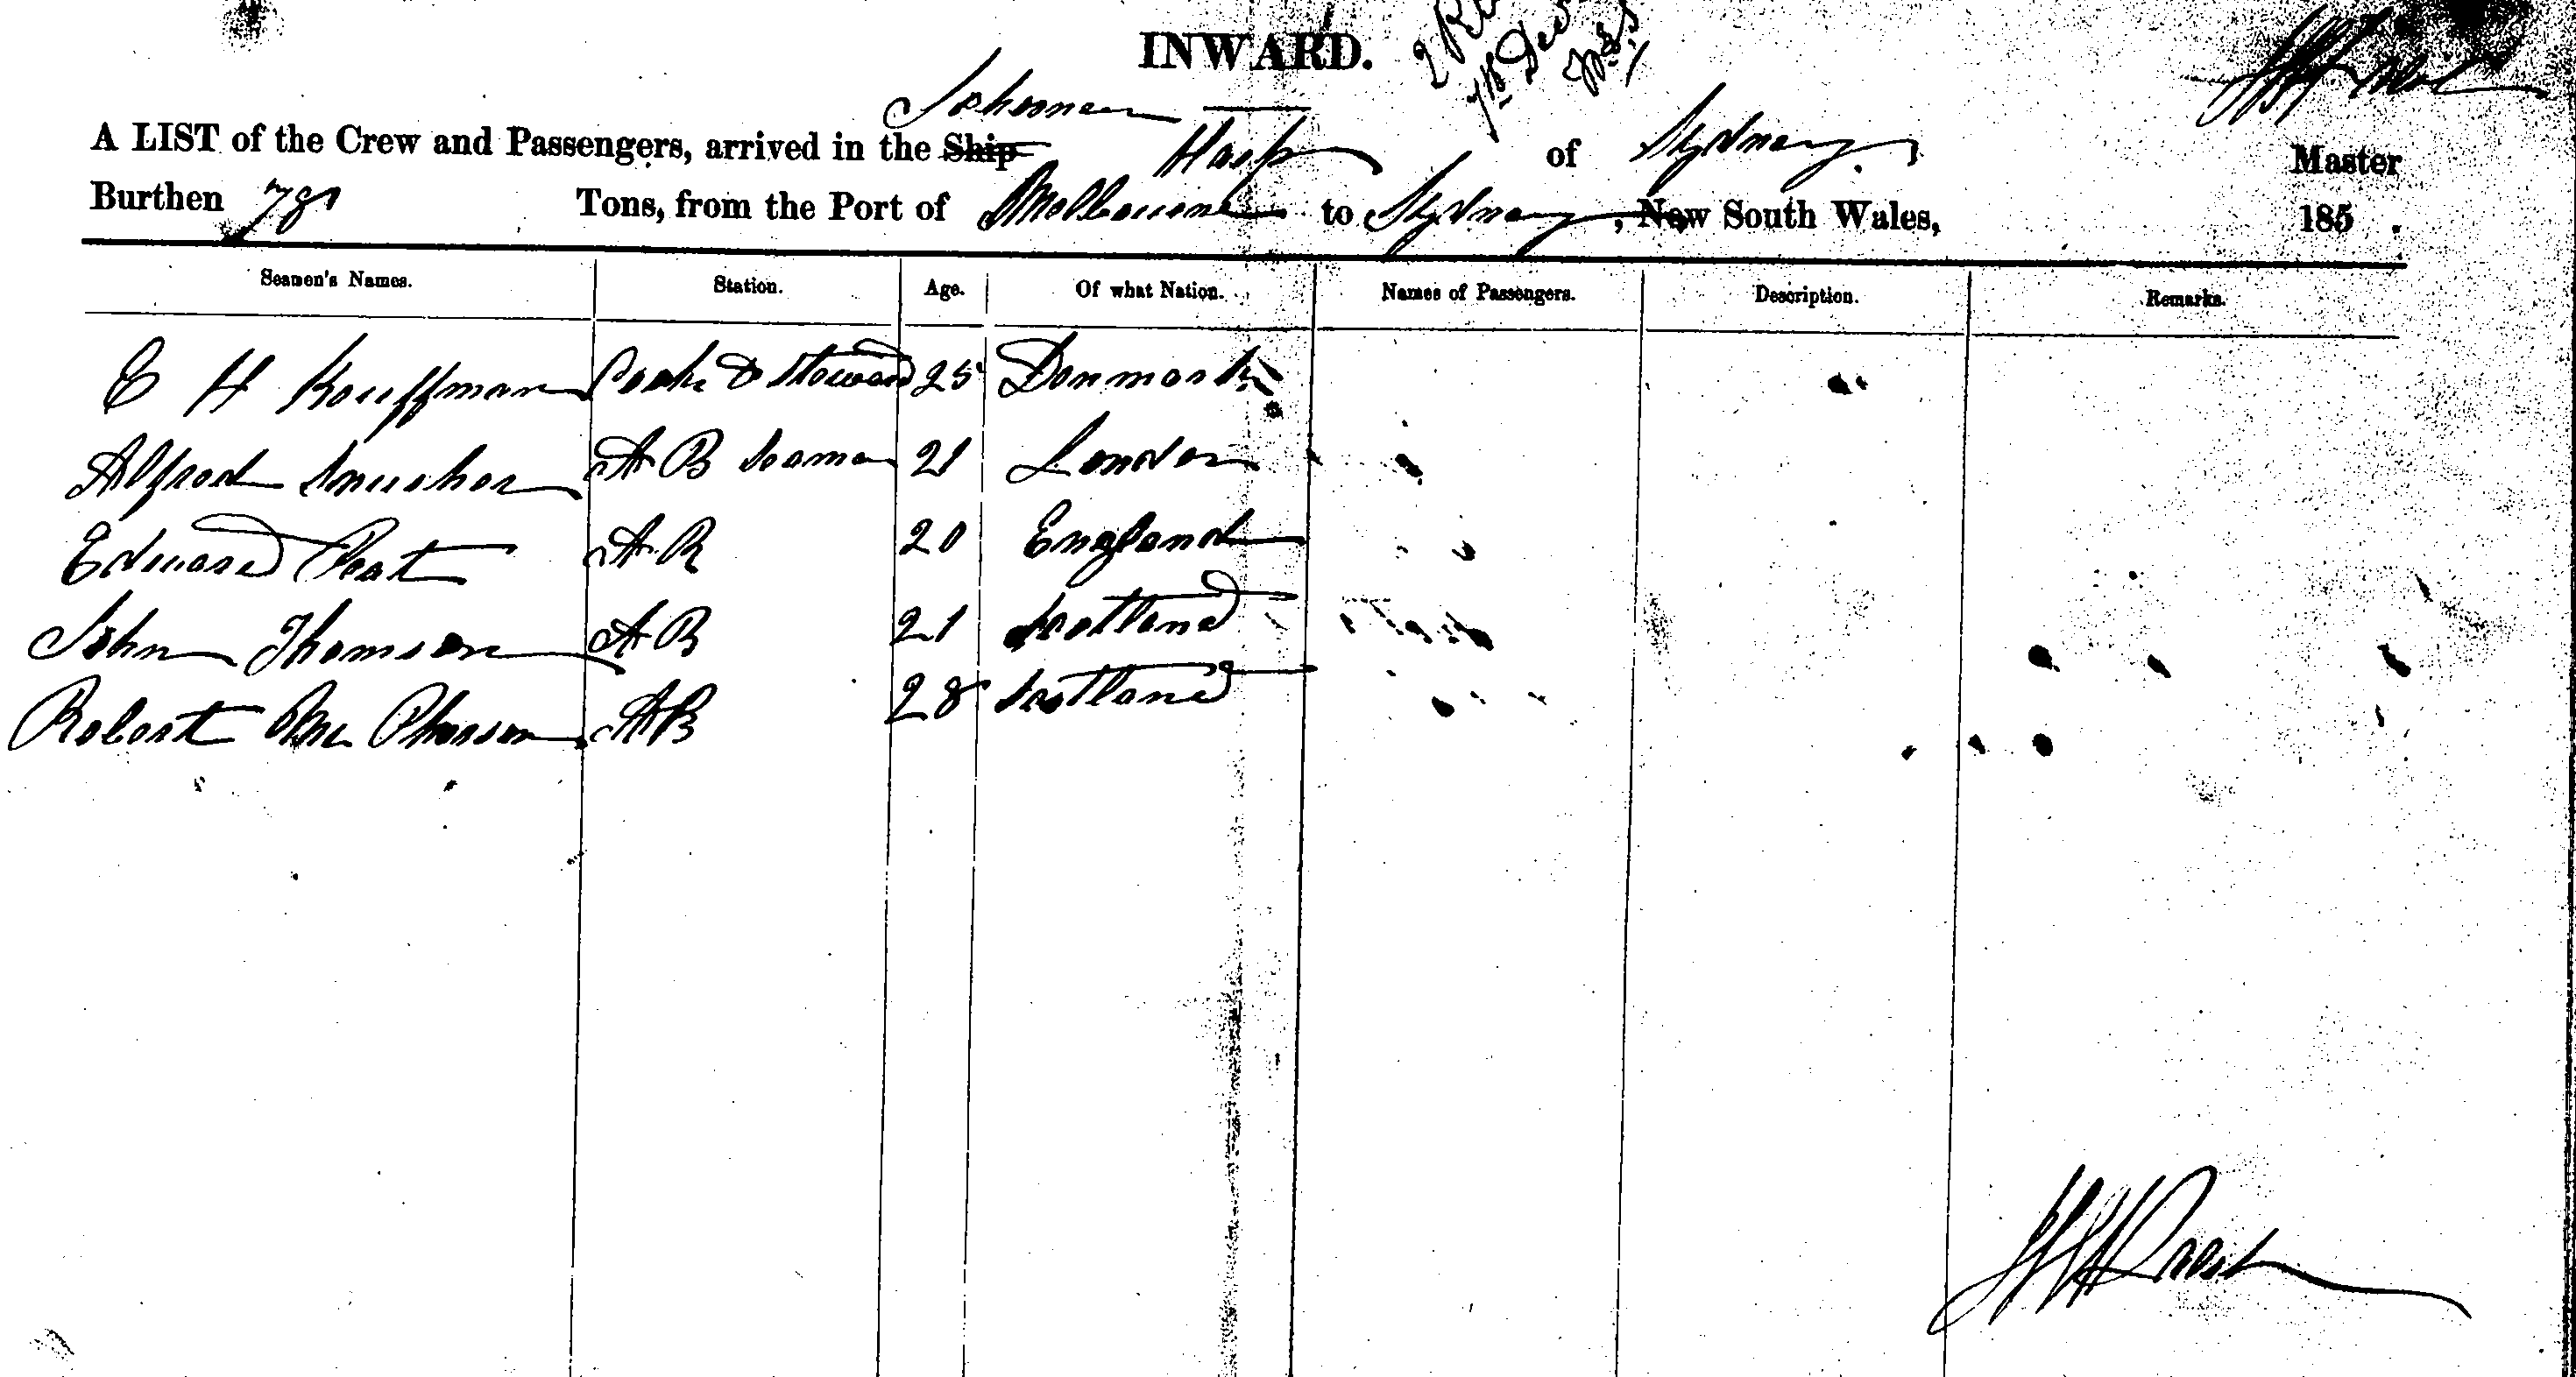 INWARD.
7th Dec
Schooner
A LIST of the Crew and Passengers, arrived in the Ship Harp of Sydney Master
Burthen 78 Tons, from the Port of Melbourne to Sydney, New South Wales, 185 .
Seamen's Names. Station. Age. Of what Nation. Names of Passengers. Description. Remarks.
E H Kouffman Cook & Steward 25 Denmark
Alfred A B Seaman 21 London
Edward Peat A B 20 England
John Thomson A B 21 Scotland
Robert McPherson A B 28 Scotland